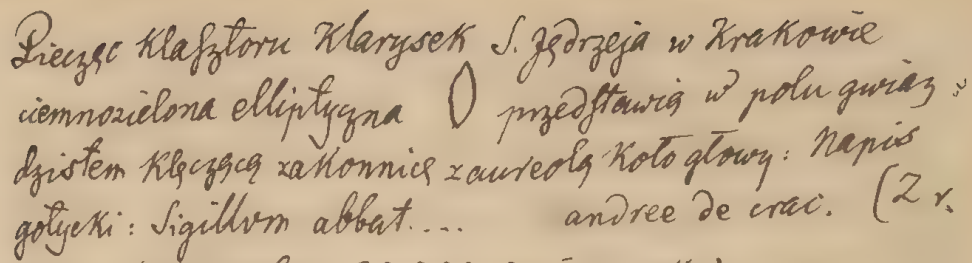 Pieczęć klasztoru Klarysek S. Jędrzeja w Krakowie
ciemnozielona elliptyczna przedstawia w polu gwiaz-
dzistem klęczącą zakonnicę z aureolą koło głowy: Napis
gotycki: Sigillum abbat.... andree de crac. (Z r.